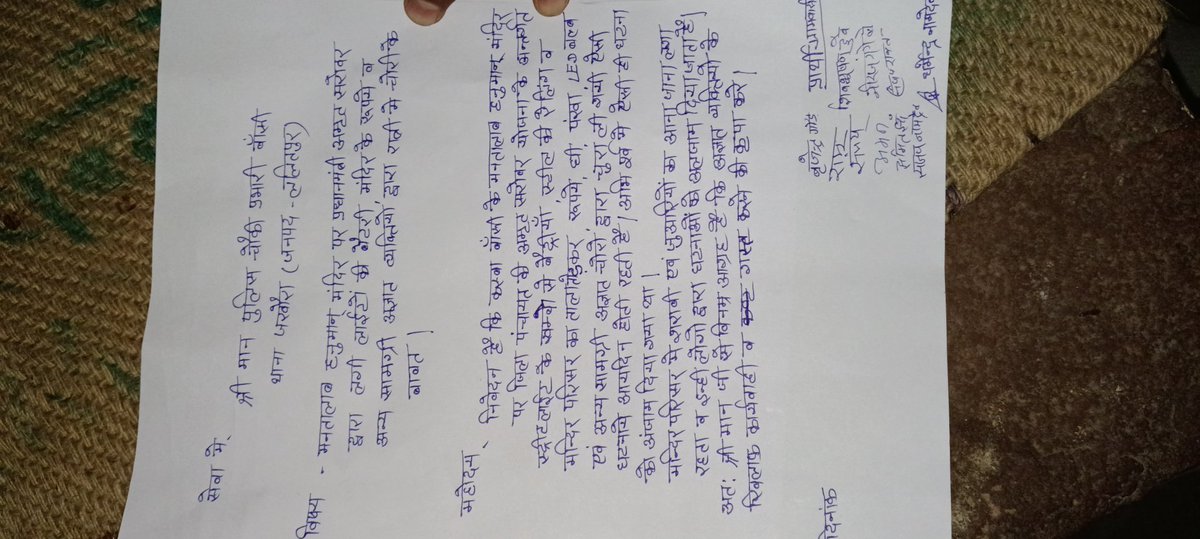 सेवा में,
श्री मान पुलिस चौकी प्रभारी बाँसी
थाना जखौरा (जनपद - ललितपुर)
विषय - मनतालाब हनुमान मंदिर पर प्रधानमंत्री अमृत सरोवर
द्वारा लगी लाईटों की बैटरी, मंदिर के रूपये व
अन्य सामग्री अज्ञात व्यक्तियों द्वारा रात्री में चोरी के
बावत।
महोदय,
निवेदन है कि कस्बा बाँसी के मनतालाब हनुमान मंदिर
पर जिला पंचायत की अमृत सरोवर योजना के अन्तर्गत
स्ट्रीट लाईट के खम्बों से बैट्रीयाँ स्टील की रैलिंग व
मन्दिर परिसर का ताला तोड़कर रूपये, घी, पंखा LED बल्ब
एवं अन्य सामग्री अज्ञात चोरों द्वारा चुरा ली गयी ऐसी
घटनायें आयेदिन होती रहती हैं। अभि पूर्व में ऐसी ही घटना
को अंजाम दिया गया था।
मन्दिर परिसर में शराबी एवं जुआरियों का आना जाना लगा
रहता व इन्ही लोगो द्वारा घटनाओं को अन्जाम दिया जाता है।
अतः श्री मान जी से विनम्र आग्रह है कि अज्ञात व्यक्तियो के
खिलाफ कार्यवाही व गास्त करने की कृपा करें।
दिनांक
प्रार्थी
धर्मेन्द्र नामदेव